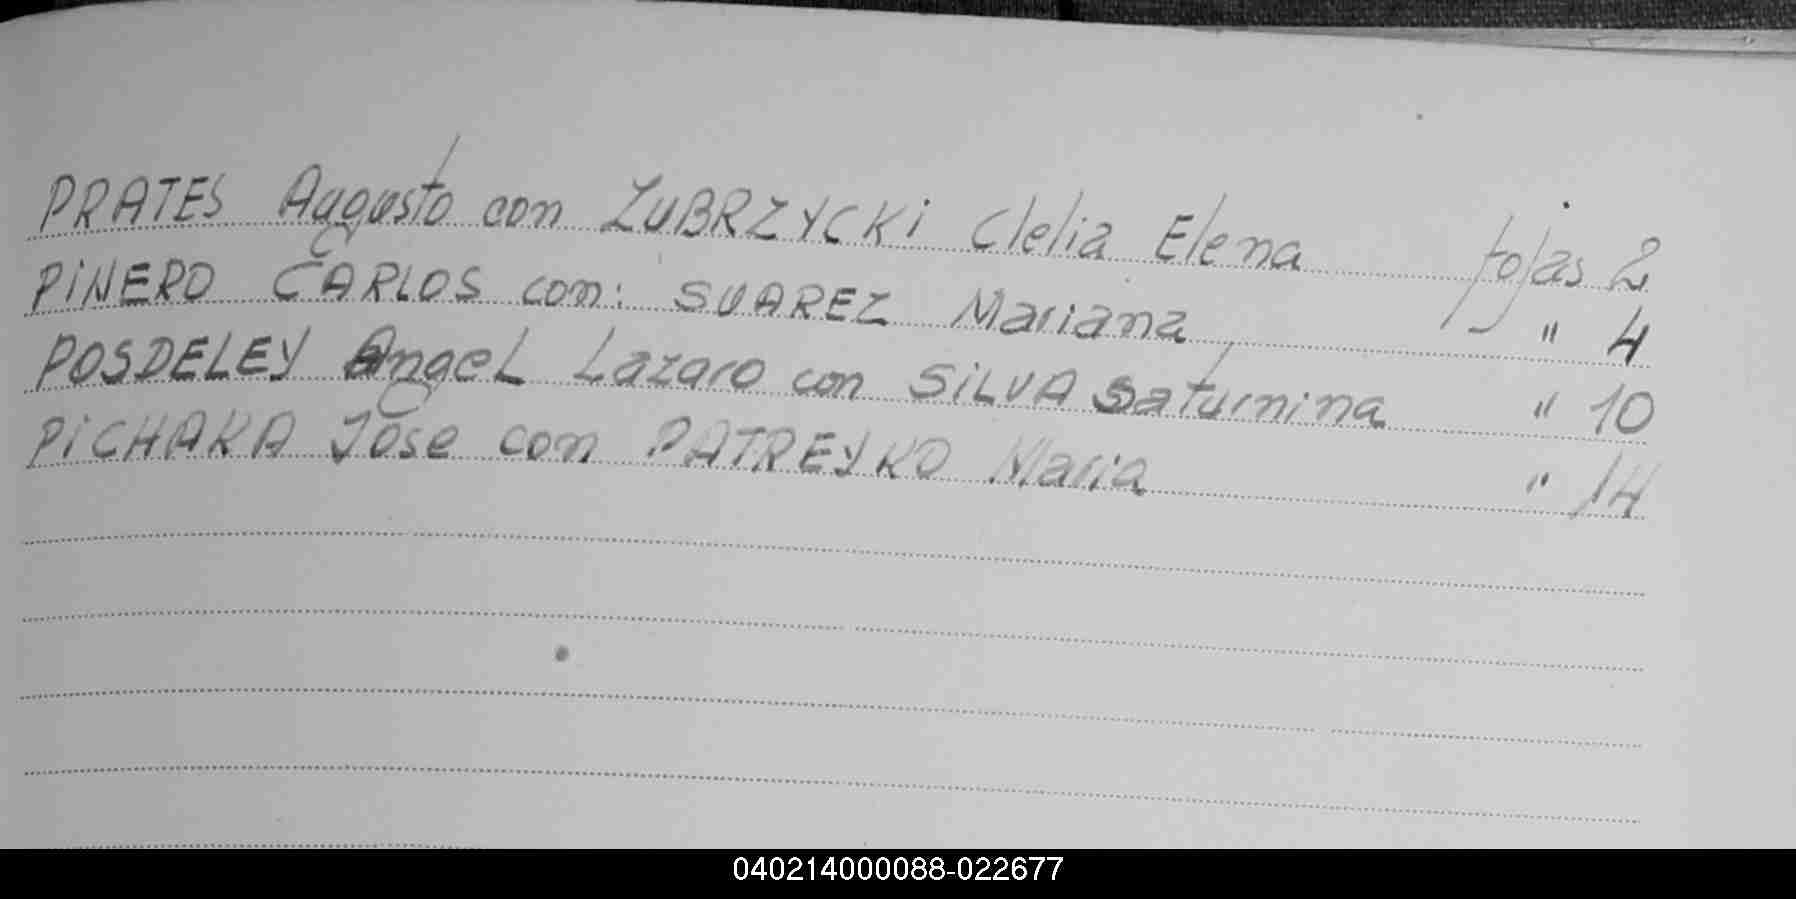 PRATES Augusto con ZUBRZYCKi Clelia Elena fojas 2
PiNERO CARLOS con: SUAREZ Mariana " 4
POSDELEY AngeL Lazaro con SiLVA Saturnina " 10
PiCHAKA Jose con PATREYKO Maria " 14
040214000088-022677